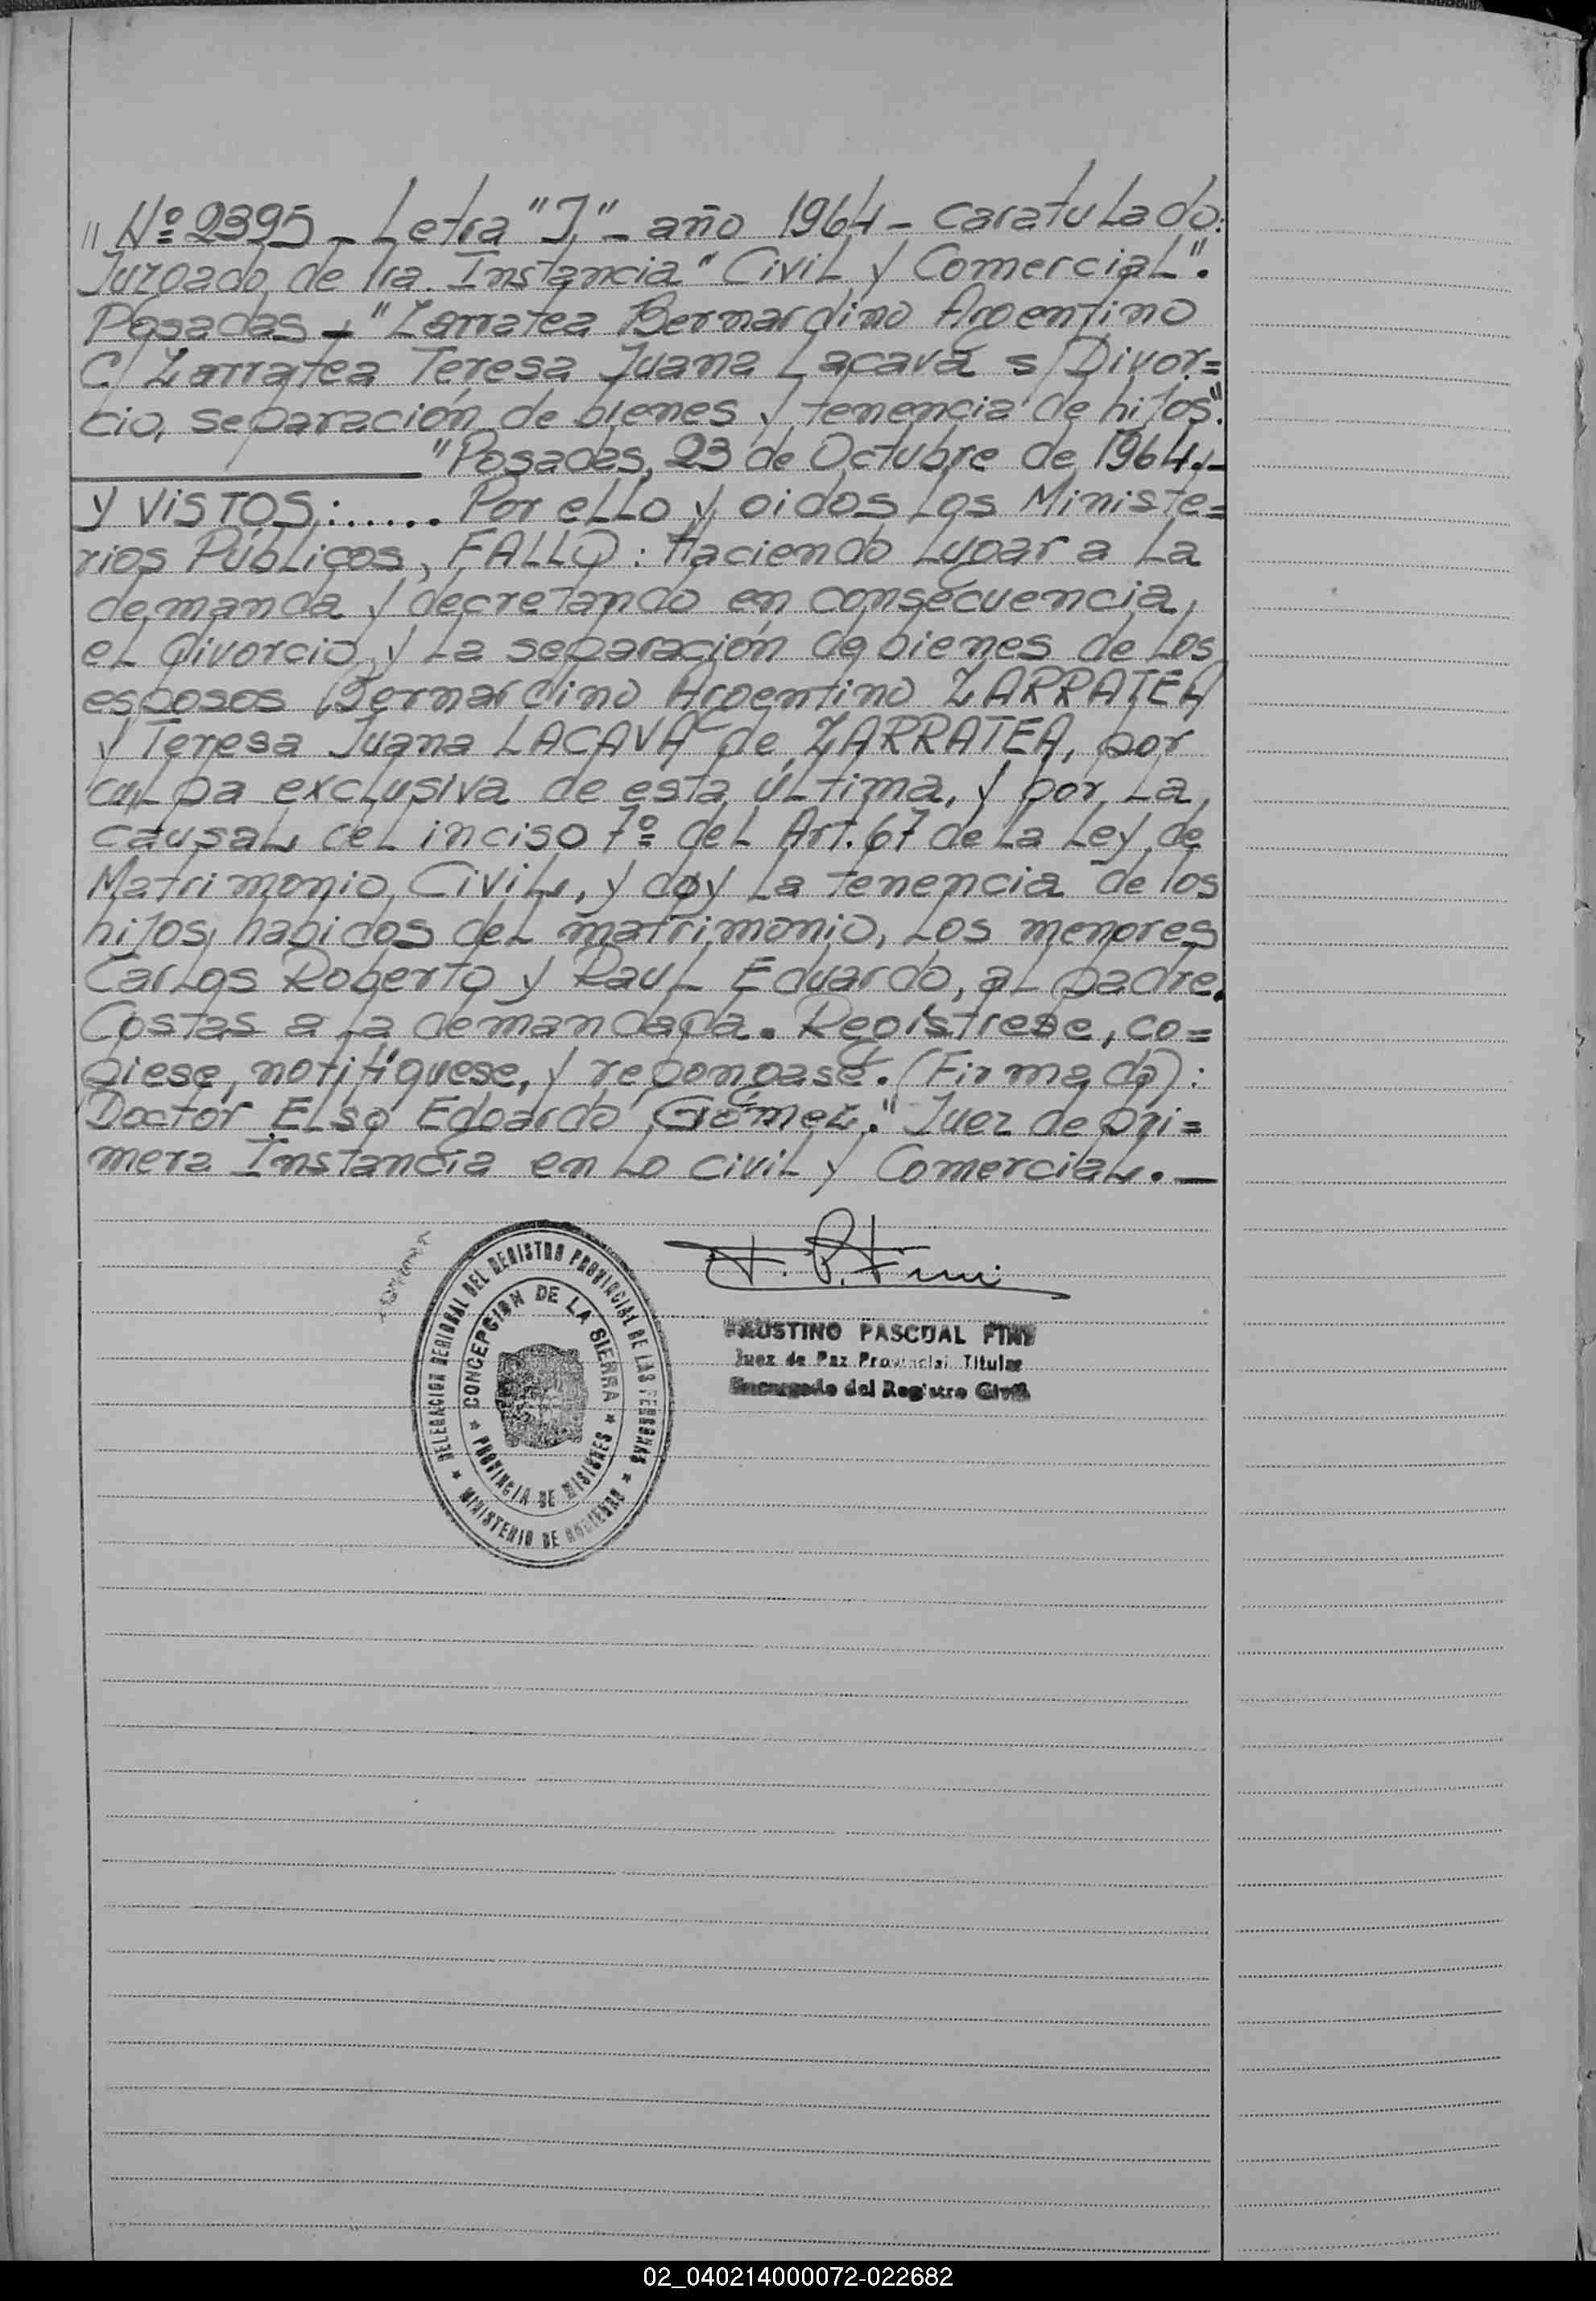 "Nº 2395 - Letra "J" - año 1964 - Caratulado:
Juzgado de 1ra. Instancia "Civil y Comercial".
Posadas - "Zarratea Bernardino Argentino
C/ Zarratea Teresa Juana Lacava s/ Divor=
cio, separación de bienes y tenencia de hijos".
"Posadas, 23 de Octubre de 1964.-
Y VISTOS:...... Por ello y oidos los Ministe=
rios Públicos, FALLO: Haciendo lugar a la
demanda y decretando en consecuencia,
el divorcio y la separación de bienes de los
esposos Bernardino Argentino ZARRATEA
y Teresa Juana LACAVA de ZARRATEA, por
culpa exclusiva de esta última, y por la
causal del inciso 7º del Art. 67 de la Ley de
Matrimonio Civil, y doy la tenencia de los
hijos habidos del matrimonio, los menores
Carlos Roberto y Raul Eduardo, al padre.
Costas a la demandada. Regístrese, co=
piese, notifíquese, y repongase. (Firmado):
Doctor Elso Edgardo Gómez." Juez de pri=
mera Instancia en lo civil y Comercial.-
DELEGACION REGIONAL DEL REGISTRO PROVINCIAL DE LAS PERSONAS
CONCEPCION DE LA SIERRA
PROVINCIA DE MISIONES
MINISTERIO DE GOBIERNO
FAUSTINO PASCUAL FINI
Juez de Paz Provincial Titular
Encargado del Registro Civil
02_040214000072-022682